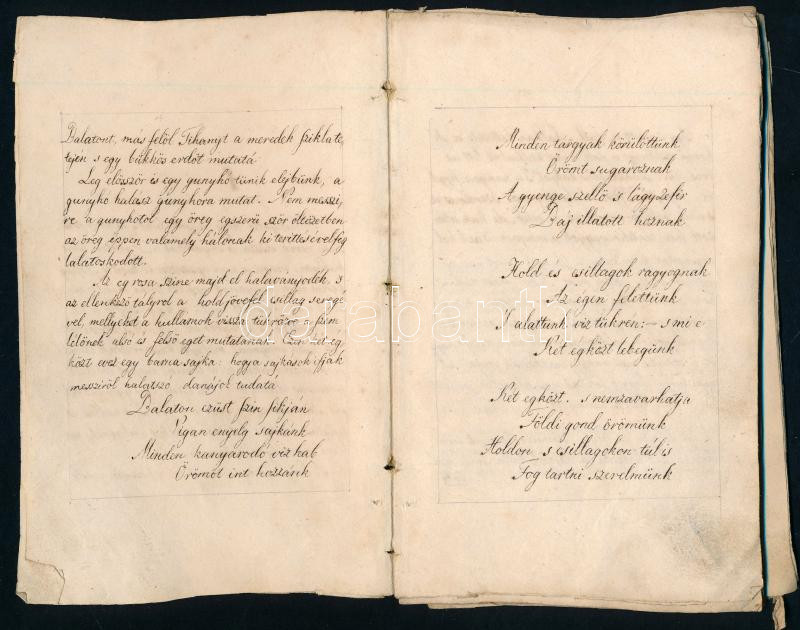 Balatont, más felöl Tihanyt a meredek sziklate,
tejen s egy bükkös erdőt mutatá
Leg elösször is egy gunyhó tünik elejbünk, a
gunyhó halász gunyhóra mutat. Nem messzi,
re a gunyhotol egy öreg egszerü ször öltözetben
az öreg éppen valamely hálonak ki terittesével fog
lalatoskodott.
Az eg rosa szine majd el halaványodék, s
az ellenkező talyrol a hold jöve fel csillag serege
vel, mellyeket a hullamok vissza tükrözve a szem
lelőnek alsó és felső eget mutatának. Ezen két ég
közt evez egy barna sajka: hogy a sajkások ifjak
messziröl halatszó danájok tudatá
Balaton ezüst szin sikján
Vigan enyelg sajkánk
Minden kanyarodó viz hab
Örömöt int hozzánk
Minden targyak körülöttünk
Örömt sugároznak
A gyenge szellő s lágy zefir
Báj illatott hoznak
Hold és csillagok ragyognak
Az égen felettünk
S alattunk viz tükren: – s mi e
Két égközt lebegünk
Két égközt. s nem zavarhatja
Földi gond örömünk
Holdon s csillagokon túl is
Fog tartni szerelmünk
darabanth